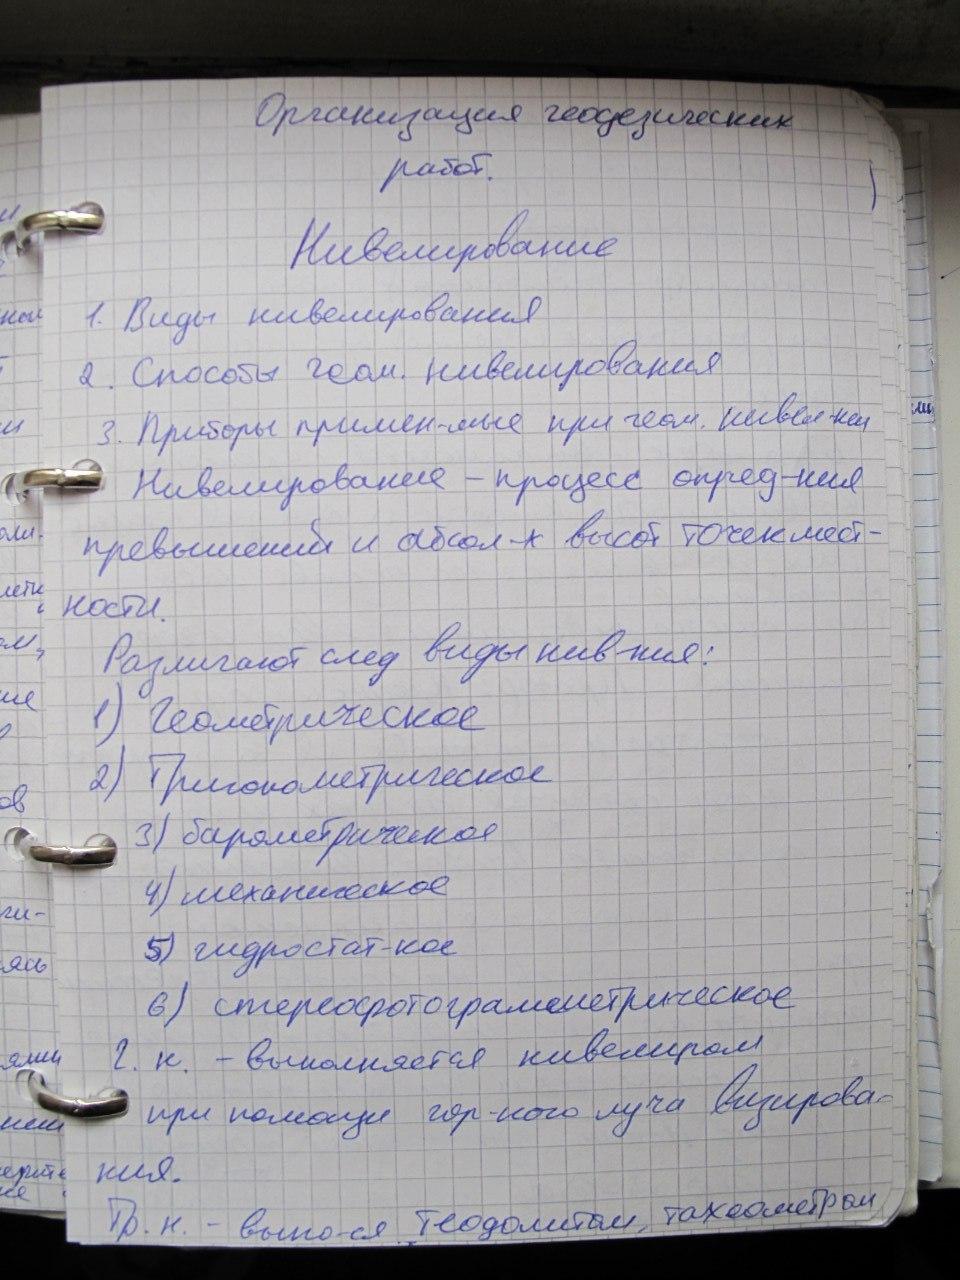 Организация геодезических
работ.
Нивелирование
1. Виды нивелирования
2. Способы геом. нивелирования
3. Приборы примен-мые при геом. нивел-нии
Нивелирование – процесс опред-ния
превышений и абсол-х высот точек мест-
ности.
Различают след виды нив-ния:
1) Геометрическое
2) Тригонометрическое
3) барометрическое
4) механическое
5) гидростат-кое
6) стереофотограмметрическое
Г. н. – выполняется нивелиром
при помощи гор-ного луча визирова-
ния.
Тр. н. – выпо-ся теодолитом, тахеометром